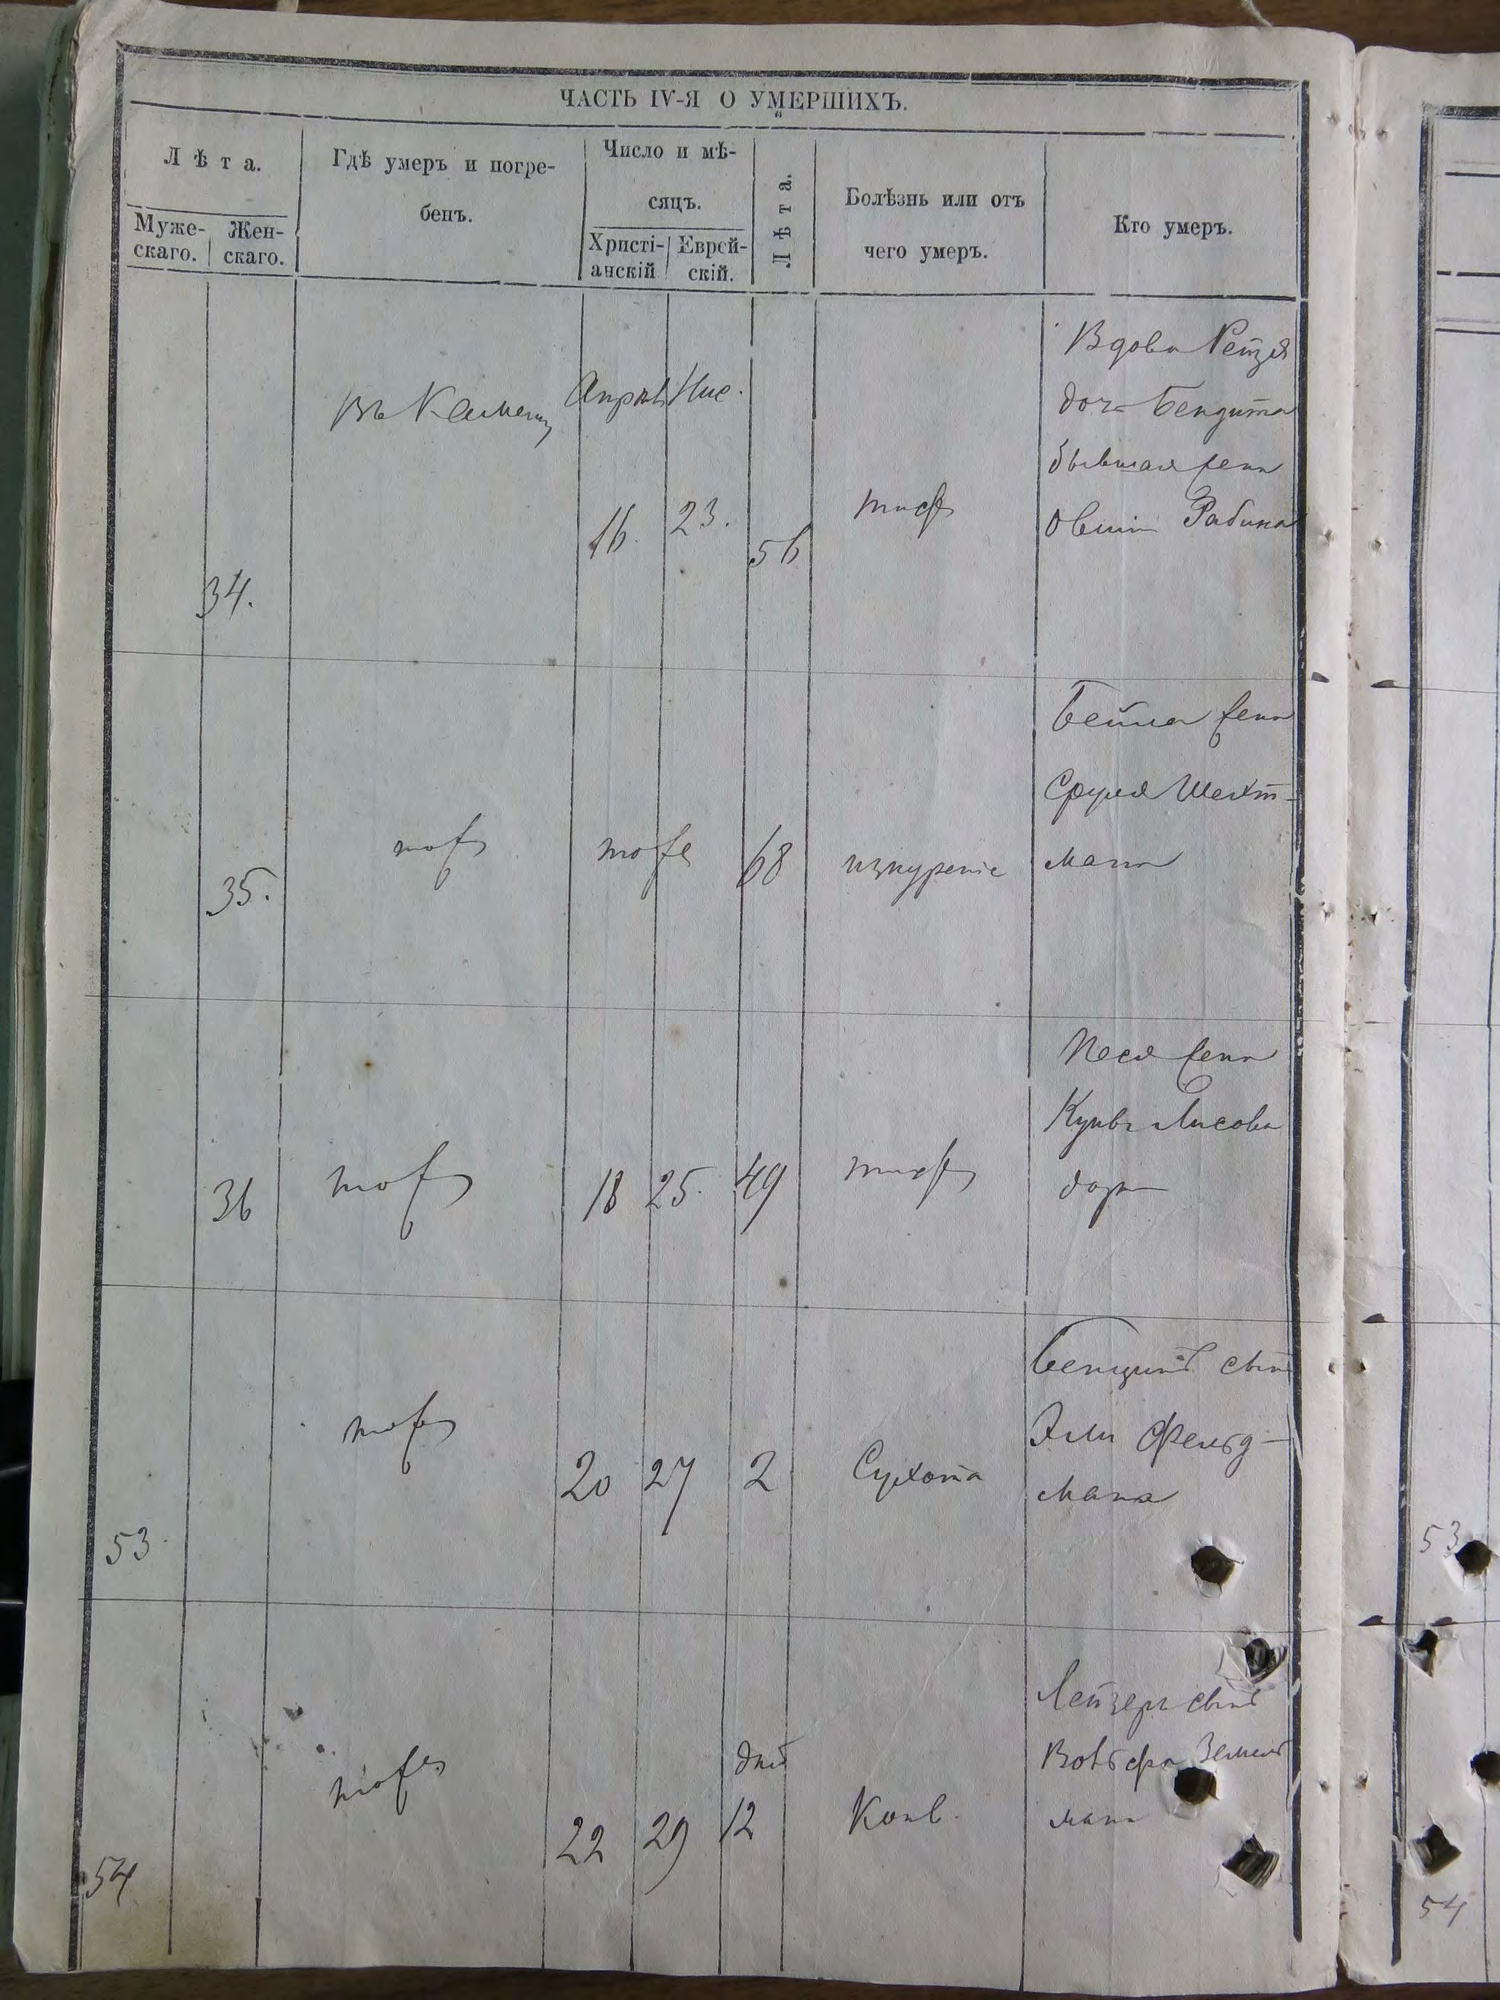 ЧАСТЬ IV-Я О УМЕРШИХЪ.
Лѣта.
Муже-
скаго.
Жен-
скаго.
Гдѣ умеръ и погре-
бенъ.
Число и мѣ-
сяцъ.
Христі-
анскій
Еврей-
скій.
Лѣта.
Болѣзнь или отъ
чего умеръ.
Кто умеръ.
34.
въ Каменц
Апрѣл
16.
Нис.
23.
56
тиф
Вдова Рейзя
доч Бендита
бывшая жена
Овшии Рабина
35.
тоже
тоже
68
изнуреніе
Бейла жена
Сруля Шехт-
мана
36
тоже
18
25.
49
тиф
Песя жена
Лисова
дора
53.
тоже
20
27
2
Сухота
Бенціонъ сынъ
Эли Фельд-
мана
54
тоже
22
29
дней
12
Конв.
Лейзеръ сынъ
Вольфа Земель
мана
53
54